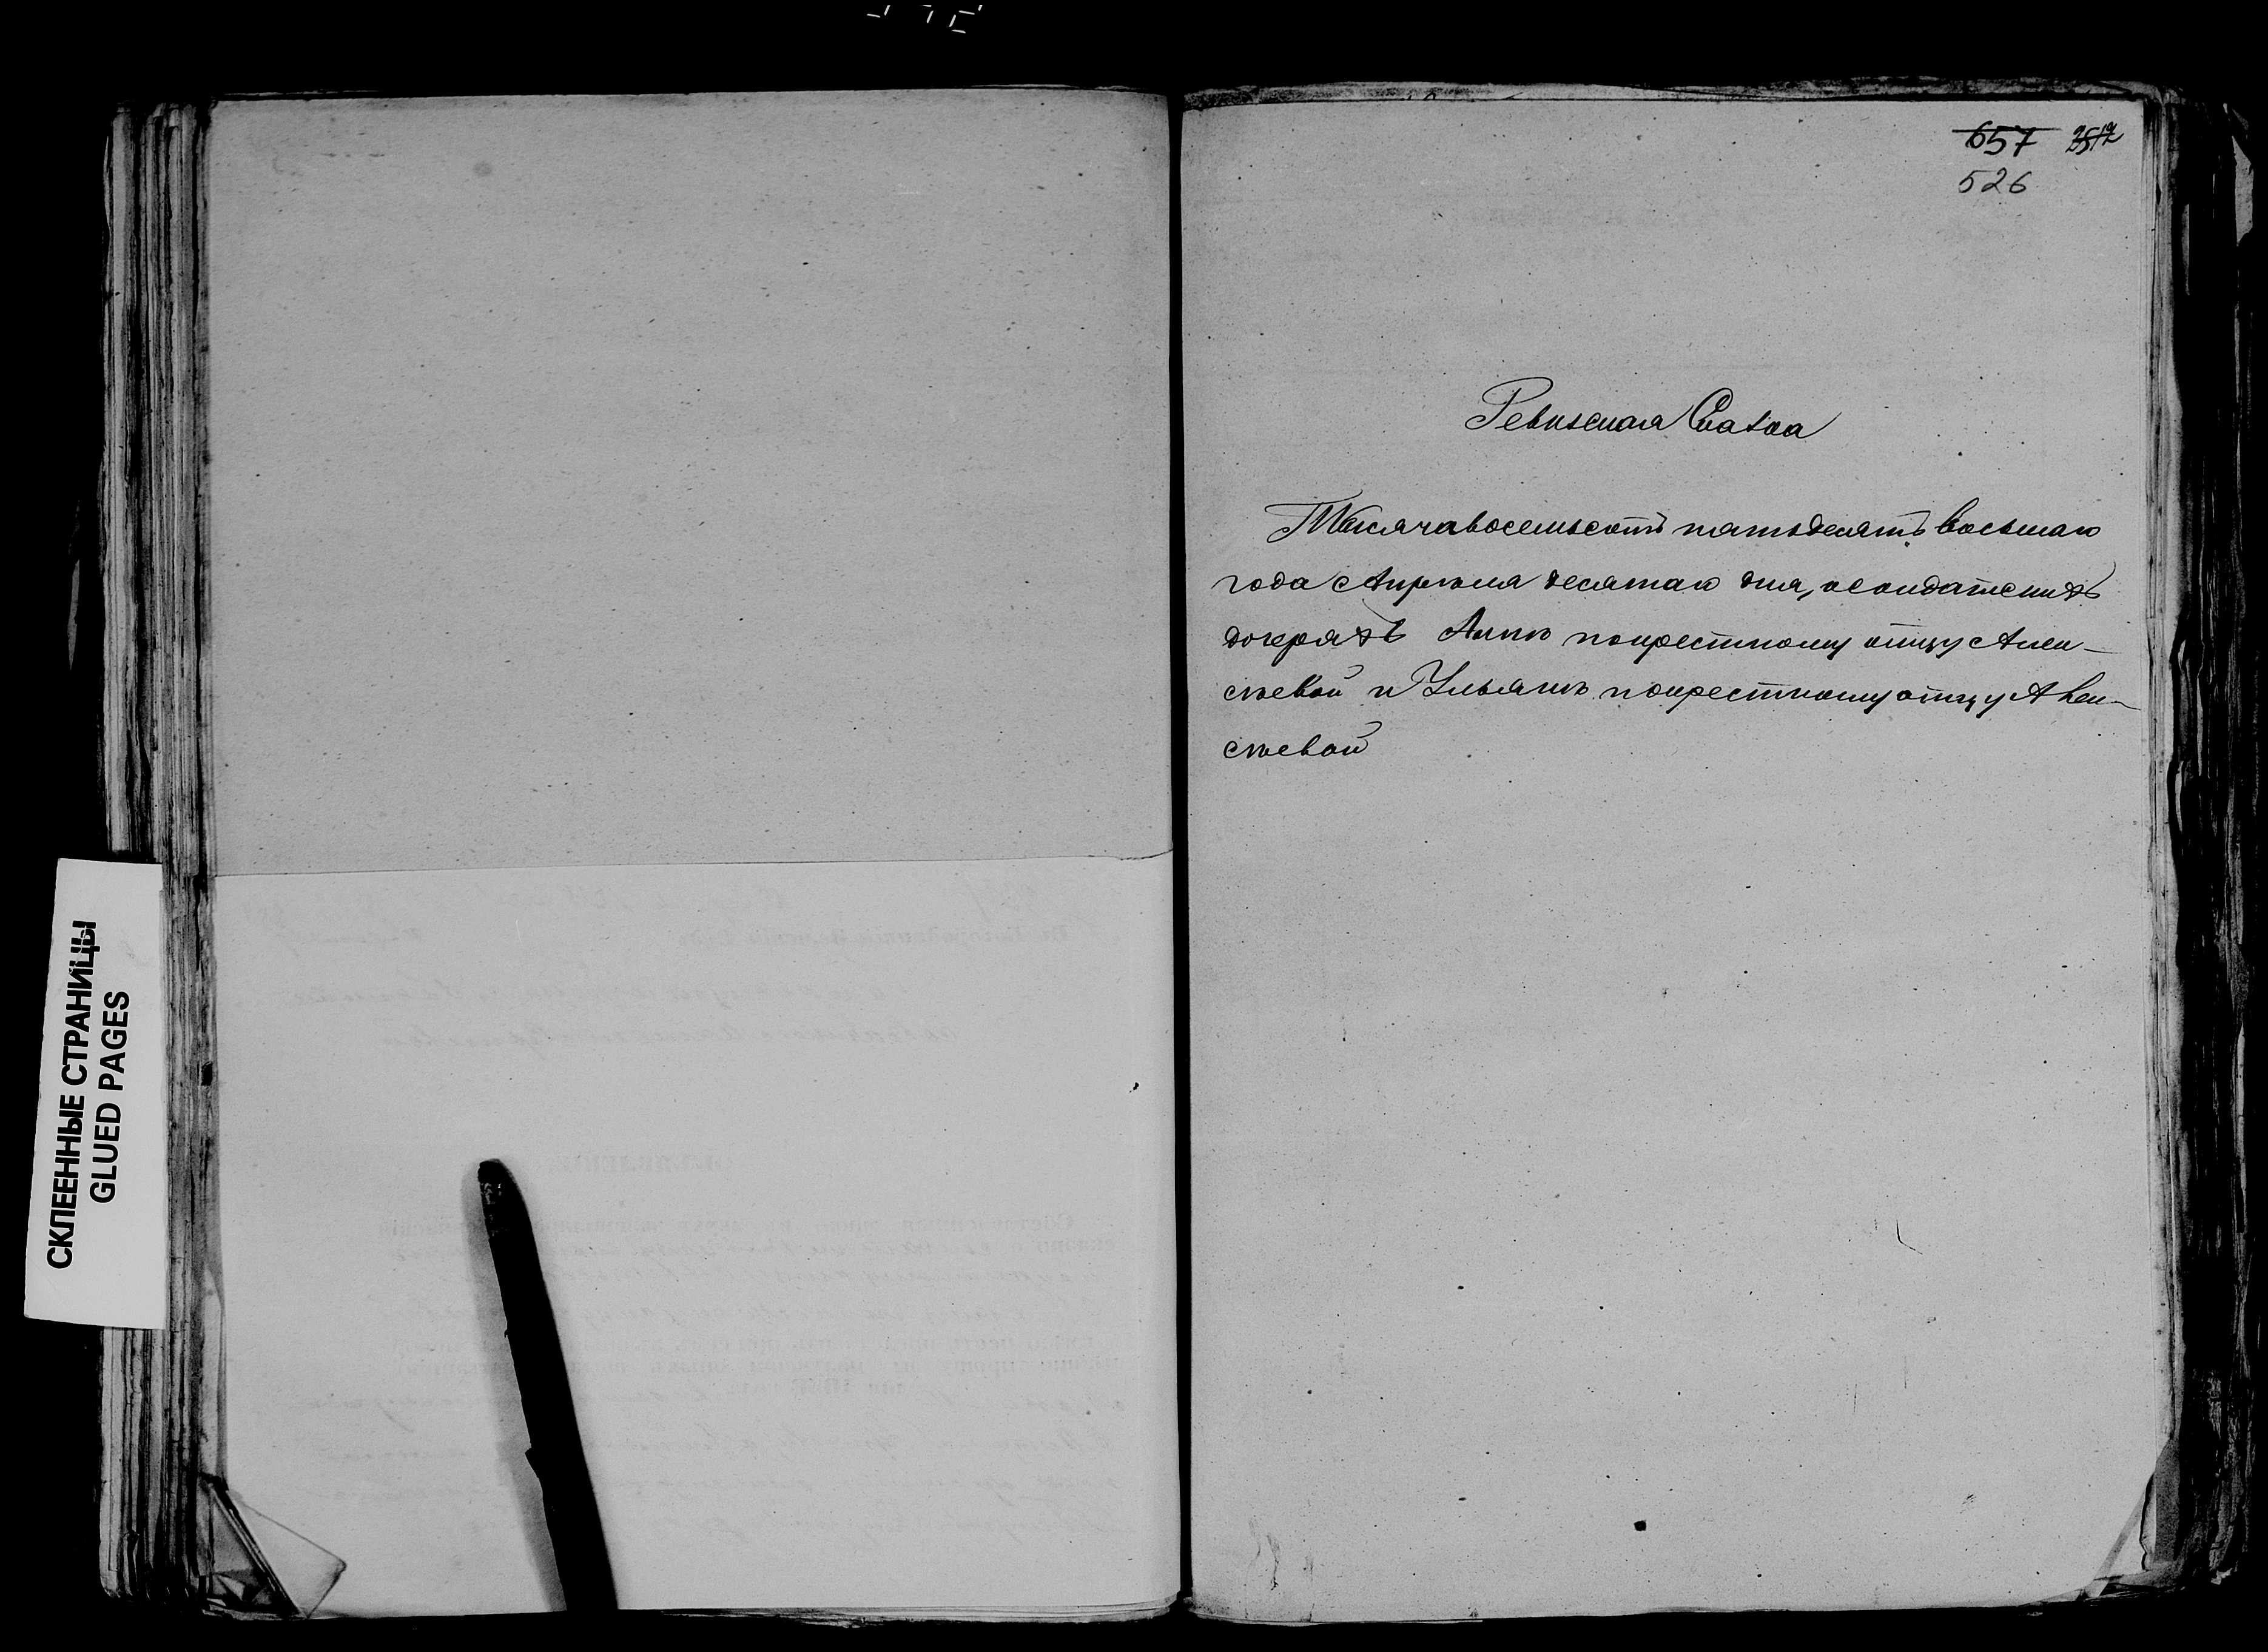 657
526
Ревизская Сказка
Тысяча восемьсотъ пятьдесятъ восьмаго
года Апрѣля десятаго дня, о солдатскихъ
дочеряхъ Аннѣ покрестному отцу Алек-
сѣевой и Ульянѣ покрестному отцу Алек-
сѣевой
СКЛЕЕННЫЕ СТРАНИЦЫ
GLUED PAGES